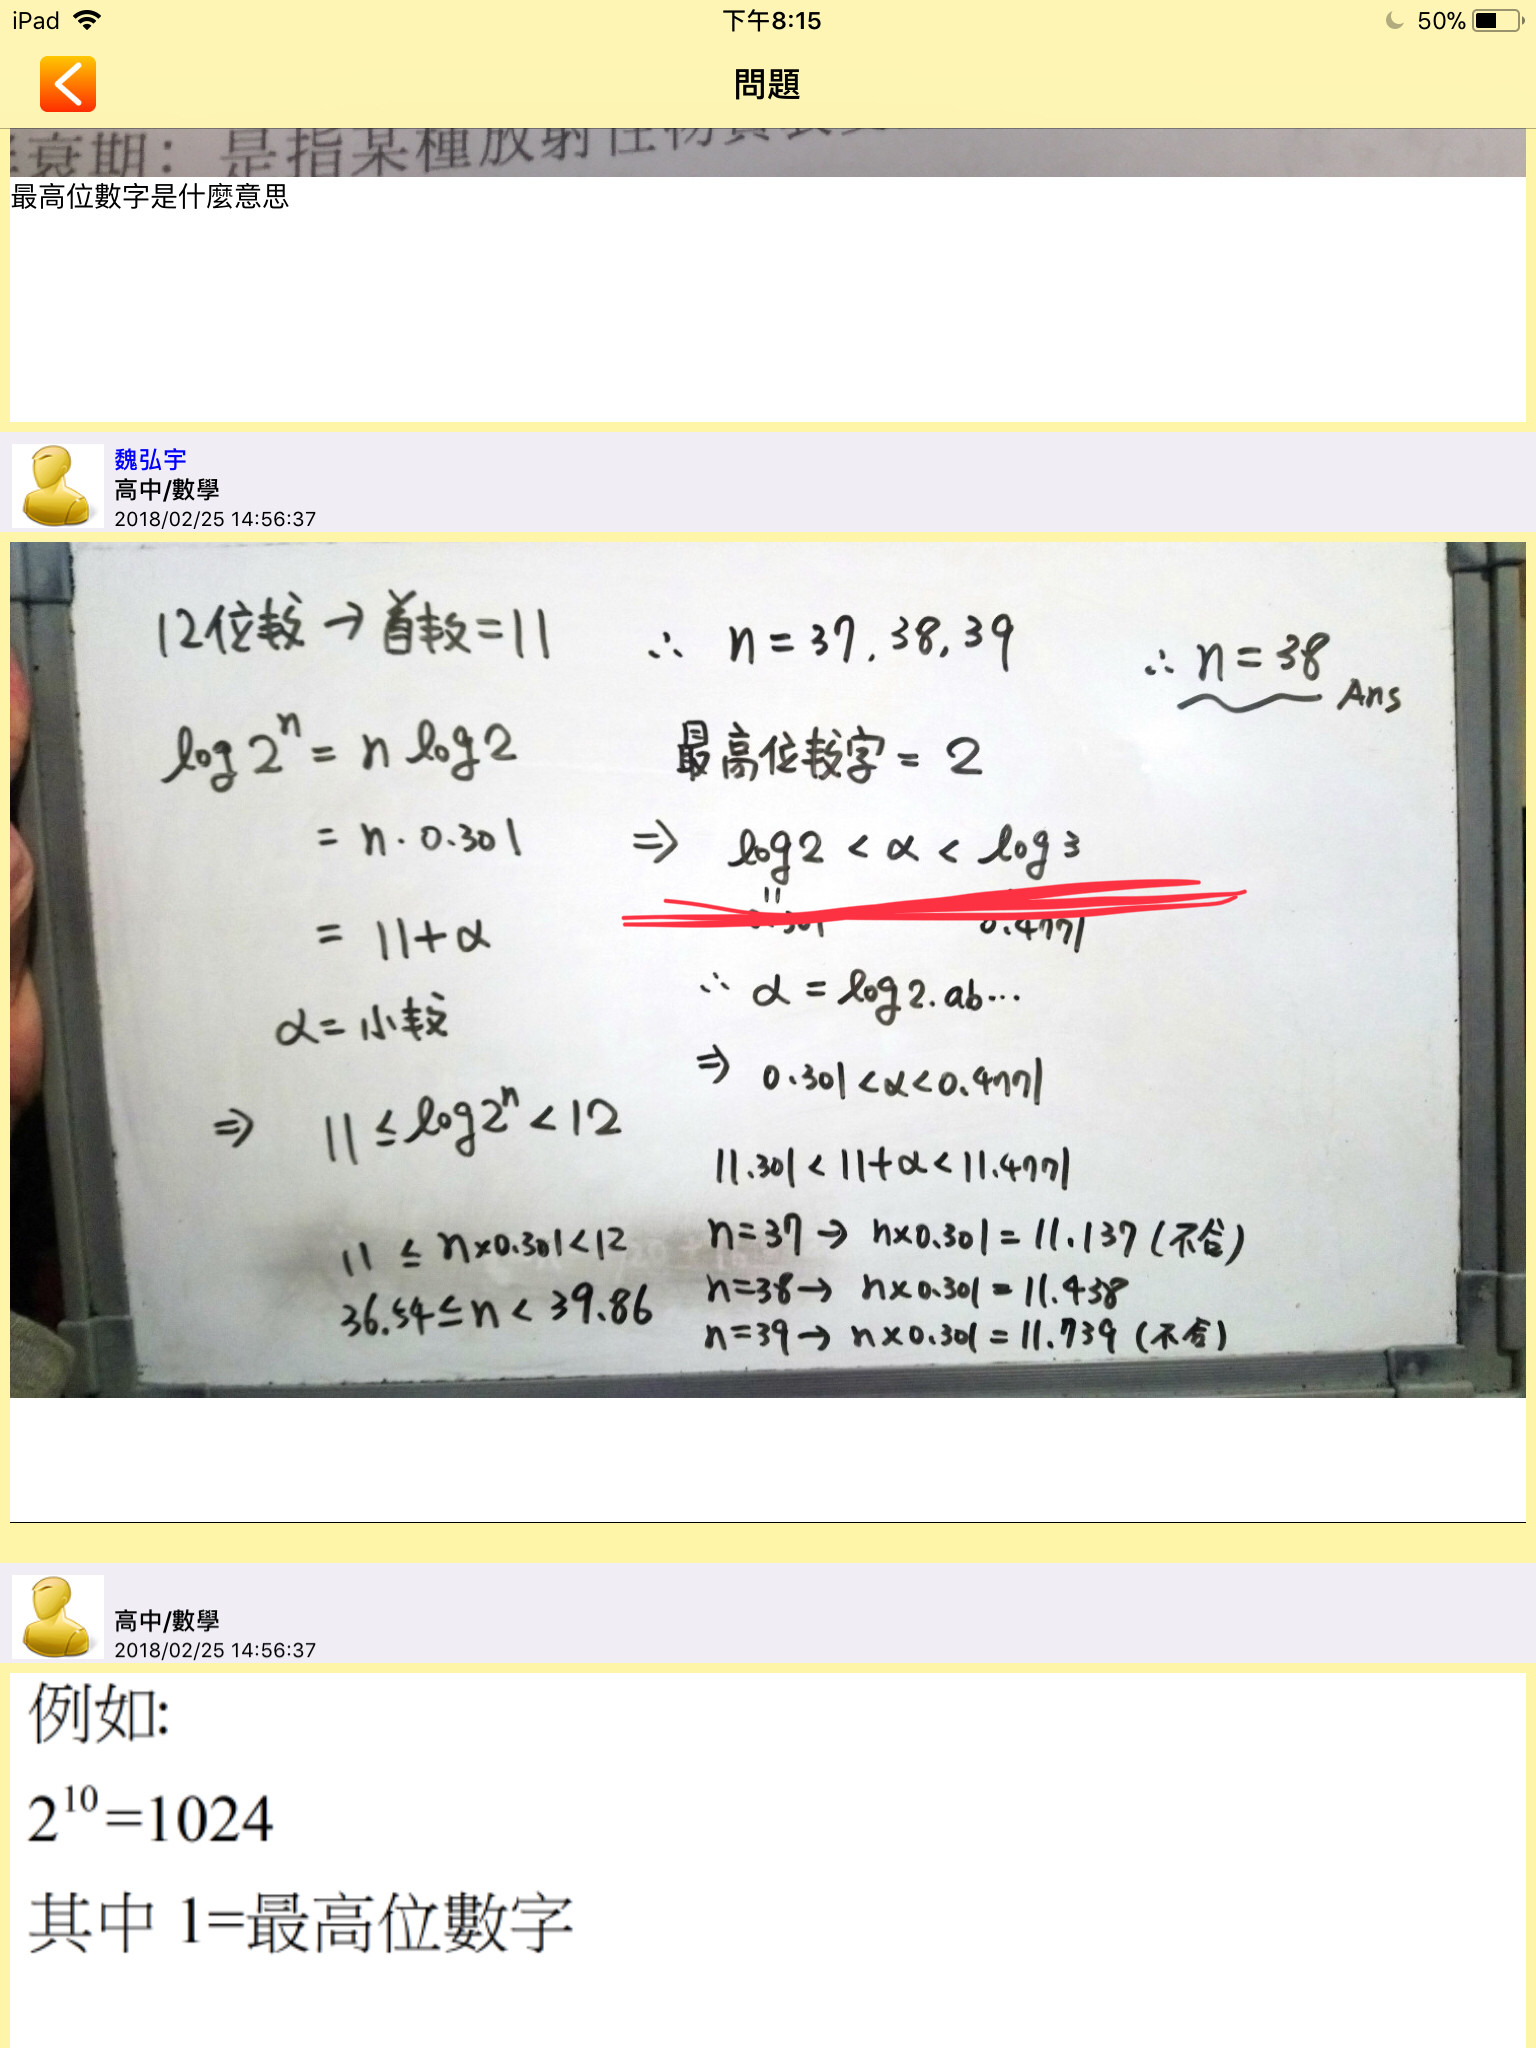 iPad
下午8:15
50%
問題
衰期：是指某種放射性物質衰變
最高位數字是什麼意思
魏弘宇
高中/數學
2018/02/25 14:56:37
12位数→首数=11
log2ⁿ= n log2
= n·0.301
= 11+α
α=小数
⇒ 11≤log2ⁿ<12
11 ≤ n×0.301<12
36.54≤n< 39.86
∴ n=37,38,39
最高位数字= 2
⇒ log2 < α < log3
"
0.301 0.4771
∴ α = log2.ab...
⇒ 0.301<α<0.4771
11.301<11+α<11.4771
n=37→ n×0.301=11.137 (不合)
n=38→ n×0.301=11.438
n=39→ n×0.301=11.739 (不合)
∴ n=38 Ans
高中/數學
2018/02/25 14:56:37
例如:
2¹⁰=1024
其中 1=最高位數字